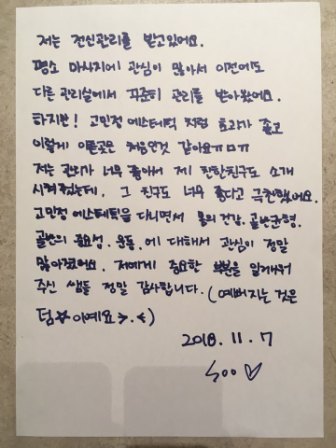 저는 전신관리를 받고있어요.
평소 마사지에 관심이 많아서 이전에도
다른 관리실에서 꾸준히 관리를 받아왔어요.
하지만! 고민정 에스테틱 처럼 효과가 좋고
이렇게 아픈곳은 처음인것 같아요ㅠㅁㅠ
저는 관리가 너무 좋아서 제 친한친구도 소개
시켜줬는데, 그 친구도 너무 좋다고 극찬했어요.
고민정 에스테틱을 다니면서 몸의 건강, 골반균형,
골반의 중요성, 운동, 에 대해서 관심이 정말
많아졌어요. 저에게 중요한 부분을 알려
주신 쌤들 정말 감사합니다. (예뻐지는 것은
덤 이예요>.<)
2018. 11. 7
Soo♡